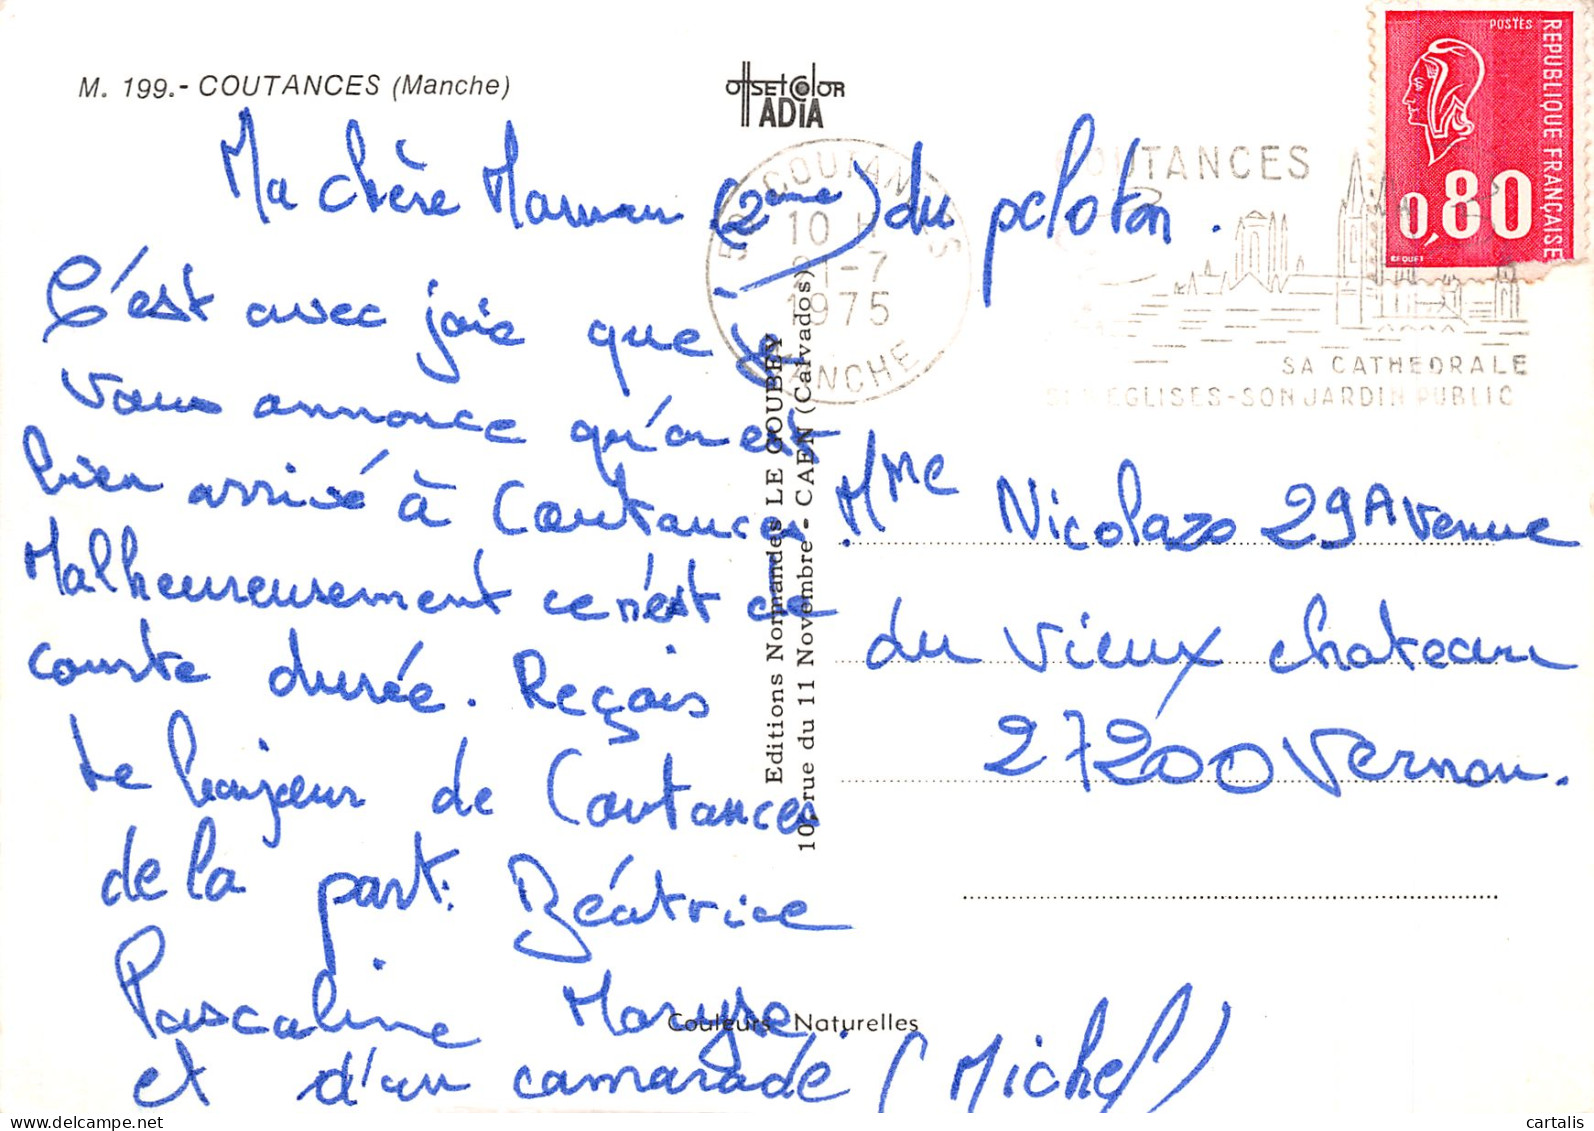 M. 199.- COUTANCES (Manche)
OffsetColor
ADIA
Ma chère Maman (2ème) du peloton.
C'est avec joie que je
vous annonce qu'on est
bien arrivé à Coutances
Malheureusement ce n'est de
courte durée. Reçois
le bonjour de Coutances
de la part: Béatrice
Pascaline Maryse
et d'un camarade (Michel)
50 COUTANCES
10 H
21-7
1975
MANCHE
COUTANCES
SA CATHEDRALE
SES EGLISES-SON JARDIN PUBLIC
POSTES
REPUBLIQUE FRANÇAISE
0,80
BEQUET
Editions Normandes LE GOUBEY
10, rue du 11 Novembre - CAEN (Calvados)
Mme Nicolazo 29 Avenue
du vieux chateau
27200 Vernon.
Couleurs Naturelles
delcampe.net
cartalis